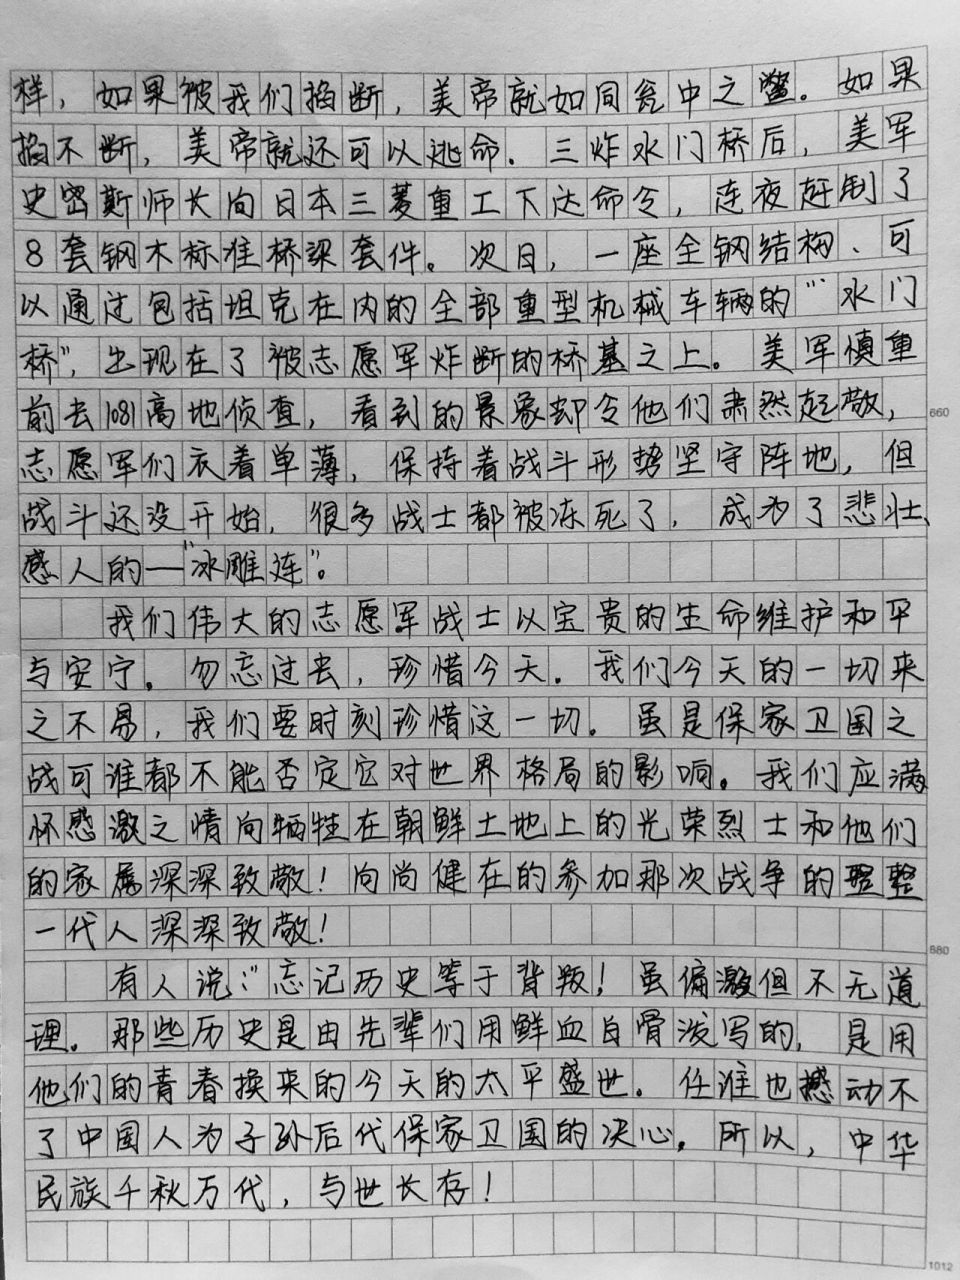 样，如果被我们掐断，美帝就如同瓮中之鳖。如果
掐不断，美帝就还可以逃命．三炸水门桥后，美军
史密斯师长向日本三菱重工下达命令，连夜赶制了
8套钢木标准桥梁套件。次日，一座全钢结构、可
以通过包括坦克在内的全部重型机械车辆的“水门
桥”，出现在了被志愿军炸断的桥基之上。美军慎重
前去1081高地侦查，看到的景象却令他们肃然起敬，
志愿军们衣着单薄，保持着战斗形势坚守阵地，但
战斗还没开始，很多战士都被冻死了，成为了悲壮、
感人的—“冰雕连”。
我们伟大的志愿军战士以宝贵的生命维护和平
与安宁。勿忘过去，珍惜今天．我们今天的一切来
之不易，我们要时刻珍惜这一切。虽是保家卫国之
战可谁都不能否定它对世界格局的影响。我们应满
怀感激之情向牺牲在朝鲜土地上的光荣烈士和他们
的家属深深致敬！向尚健在的参加那次战争的整整
一代人深深致敬！
有人说：“忘记历史等于背叛！虽偏激但不无道
理。那些历史是由先辈们用鲜血白骨泼写的，是用
他们的青春换来的今天的太平盛世．任谁也撼动不
了中国人为子孙后代保家卫国的决心．所以，中华
民族千秋万代，与世长存！
660
880
1012